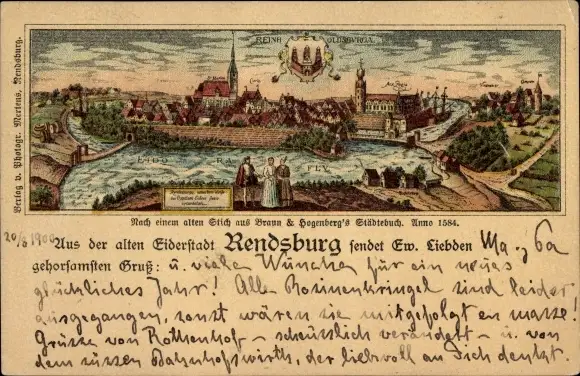 REINHOLDSBVRGA.
EIDO RA FLV.
Verlag v. Photogr. Mertens, Rendsburg.
Nach einem alten Stich aus Braun & Hogenberg's Städtebuch. Anno 1584.
20/8 1900
Aus der alten Eiderstadt Rendsburg sendet Ew. Liebden
gehorsamsten Gruß: u. viele Wünsche für ein neues
glückliches Jahr! Alle Rosinenkringel sind leider
ausgegangen, sonst wären sie mitgefolgt en masse!
Grüsse von Rothenhof – scheusslich verändert – u. von
dem süssen Bahnhofswirth, der liebvoll an Dich denkt.